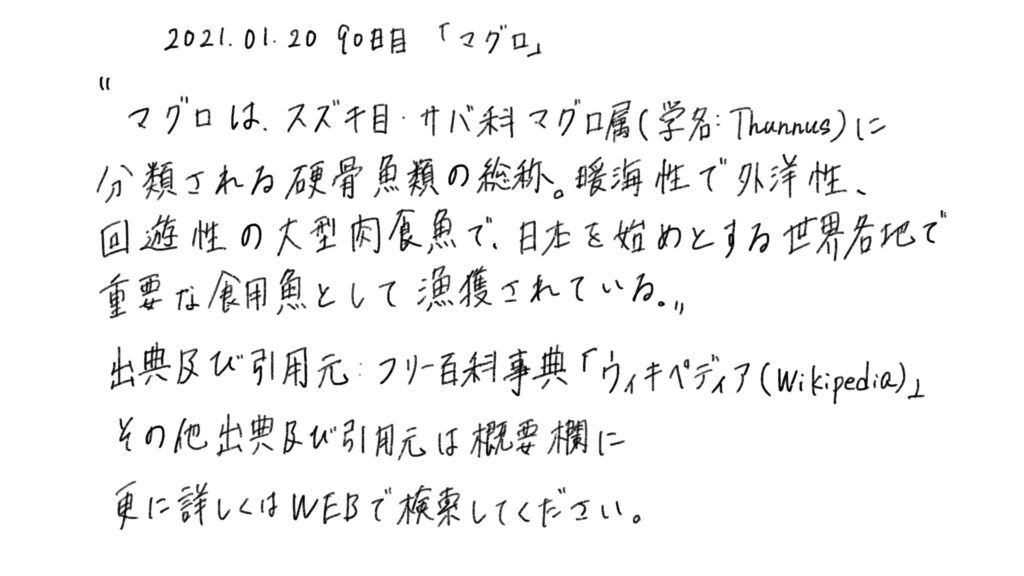 2021.01.20 90日目 「マグロ」
“マグロは、スズキ目・サバ科マグロ属(学名:Thunnus)に
分類される硬骨魚類の総称。暖海性で外洋性、
回遊性の大型肉食魚で、日本を始めとする世界各地で
重要な食用魚として漁獲されている。„
出典及び引用元:フリー百科事典「ウィキペディア(Wikipedia)」
その他出典及び引用元は概要欄に
更に詳しくはWEBで検索してください。